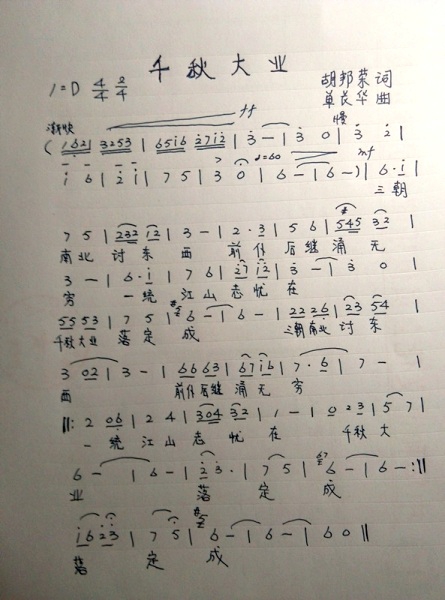 千秋大业
1=D 4/4 2/4
胡邦荣 词
单茂华 曲
渐快 ff 慢
( 1 6 2 | 3 2 5 3 | 6 5 1 6 2 7 1 2 | 3 - | 3 0 | 3 2 |
♩=60 mf
1 6 | 2 1 | 7 5 | 3 0 | 6 - | 6 - ) | 6 · 1 |
三朝
7 5 | 2 3 2 1 2 | 3 - | 2 · 3 | 5 6 | 5 4 5 3 2 |
南北 讨东 西 前仆 后继 涌无
3 - | 6 · 1 | 7 6 | 2 7 1 2 | 3 - | 3 0 |
穷 一统 江山 志忧 在
5 5 5 3 | 7 5 | 6 - | 6 - | 2 2 2 6 | 2 3 5 4 |
千秋大业 落定 成 三朝南北 讨东
3 0 2 | 3 - | 6 6 6 3 | 6 7 1 6 | 7 · 6 | 7 - |
西 前仆后继 涌无 穷
||: 2 0 6 | 2 4 | 3 0 4 3 2 | 1 - | 0 2 3 | 5 7 |
一统 江山 志忧 在 千秋大
6 - | 6 - | 2 3 · | 7 5 | 6 - | 6 - :||
业 落 定 成
1 6 2 3 | 7 5 | 6 - | 6 - | 6 0 ||
落 定 成